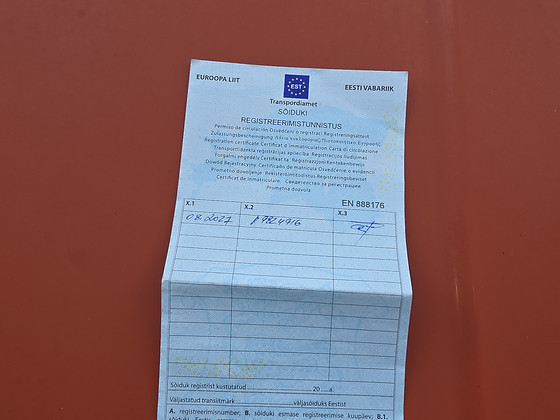 EUROOPA LIIT
EST
EESTI VABARIIK
Transpordiamet
SÕIDUKI
REGISTREERIMISTUNNISTUS
Permiso de circulación Osvědčení o registraci Registreringsattest
Zulassungsbescheinigung Άδεια κυκλοφορίας Πιστοποιητικό Εγγραφής
Registration certificate Certificat d'immatriculation Carta di circolazione
Transportlīdzekļa reģistrācijas apliecība Registracijos liudijimas
Forgalmi engedély Ċertifikat ta' Reġistrazzjoni Kentekenbewijs
Dowód Rejestracyjny Certificado de matrícula Osvedčenie o evidencii
Prometno dovoljenje Rekisteröintitodistus Registreringsbeviset
Certificat de înmatriculare Свидетелство за регистрация
Prometna dozvola
EN 888176
X.1 X.2 X.3
08.2027
Sõiduk registrist kustutatud 20 a.
Väljastatud transiitmärk väljasõiduks Eestist
A. registreerimisnumber; B. sõiduki esmase registreerimise kuupäev; B.1.